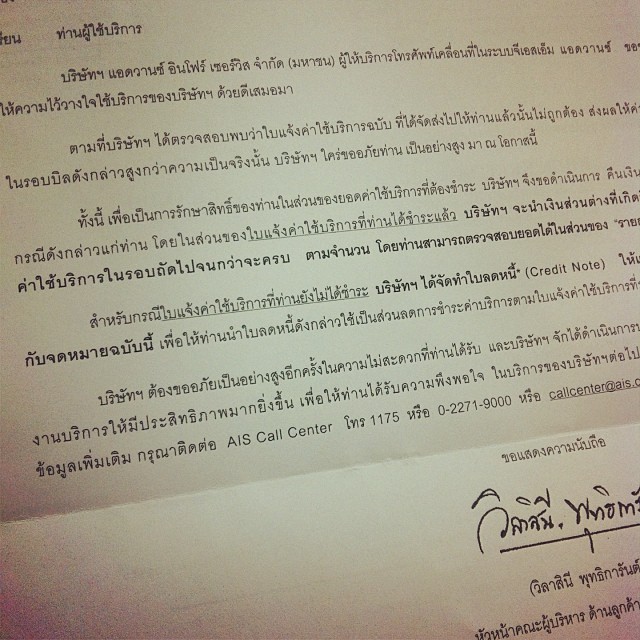 เรียน ท่านผู้ใช้บริการ
บริษัทฯ แอดวานซ์ อินโฟร์ เซอร์วิส จำกัด (มหาชน) ผู้ให้บริการโทรศัพท์เคลื่อนที่ในระบบจีเอสเอ็ม แอดวานซ์
ให้ความไว้วางใจใช้บริการของบริษัทฯ ด้วยดีเสมอมา
ตามที่บริษัทฯ ได้ตรวจสอบพบว่าใบแจ้งค่าใช้บริการฉบับ ที่ได้จัดส่งไปให้ท่านแล้วนั้นไม่ถูกต้อง ส่งผลให้
ในรอบบิลดังกล่าวสูงกว่าความเป็นจริงนั้น บริษัทฯ ใคร่ขออภัยท่าน เป็นอย่างสูง มา ณ โอกาสนี้
ทั้งนี้ เพื่อเป็นการรักษาสิทธิ์ของท่านในส่วนของยอดค่าใช้บริการที่ต้องชำระ บริษัทฯ จึงขอดำเนินการ คืนเงิน
กรณีดังกล่าวแก่ท่าน โดยในส่วนของใบแจ้งค่าใช้บริการที่ท่านได้ชำระแล้ว บริษัทฯ จะนำเงินส่วนต่างที่เกิด
ค่าใช้บริการในรอบถัดไปจนกว่าจะครบ ตามจำนวน โดยท่านสามารถตรวจสอบยอดได้ในส่วนของ
สำหรับกรณีใบแจ้งค่าใช้บริการที่ท่านยังไม่ได้ชำระ บริษัทฯ ได้จัดทำใบลดหนี้" (Credit Note)
กับจดหมายฉบับนี้ เพื่อให้ท่านนำใบลดหนี้ดังกล่าวใช้เป็นส่วนลดการชำระค่าบริการตามใบแจ้งค่าใช้บริการที่
บริษัทฯ ต้องขออภัยเป็นอย่างสูงอีกครั้งในความไม่สะดวกที่ท่านได้รับ และบริษัทฯ จักได้ดำเนินการ
งานบริการให้มีประสิทธิภาพมากยิ่งขึ้น เพื่อให้ท่านได้รับความพึงพอใจ ในบริการของบริษัทฯต่อไป
ข้อมูลเพิ่มเติม กรุณาติดต่อ AIS Call Center โทร 1175 หรือ 0-2271-9000 หรือ callcenter@ais.
ขอแสดงความนับถือ
(วิลาสินี พุทธิการันต์
หัวหน้าคณะผู้บริหาร ด้านลูกค้า